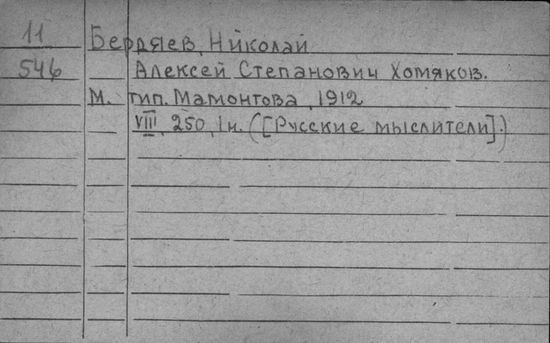 11 Бердяев, Николай
546 Алексей Степанович Хомяков.
М. тип. Мамонтова, 1912
VIII, 250, 1 н. ([Русские мыслители].)